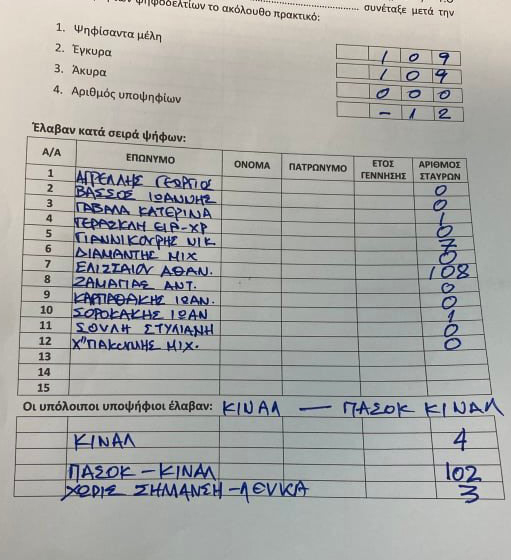 ψηφοδελτίων το ακόλουθο πρακτικό: συνέταξε μετά την
1. Ψηφίσαντα μέλη 109
2. Έγκυρα 109
3. Άκυρα 000
4. Αριθμός υποψηφίων -12
Έλαβαν κατά σειρά ψήφων:
Α/Α ΕΠΩΝΥΜΟ ΟΝΟΜΑ ΠΑΤΡΩΝΥΜΟ ΕΤΟΣ ΓΕΝΝΗΣΗΣ ΑΡΙΘΜΟΣ ΣΤΑΥΡΩΝ
1 ΑΓΓΕΛΛΗΣ ΓΕΩΡΓΙΟΣ 0
2 ΒΑΣΣΟΣ ΙΩΑΝΝΗΣ 0
3 ΓΑΒΑΛΑ ΚΑΤΕΡΙΝΑ 1
4 ΓΕΡΑΣΚΛΗ ΕΙΡ-ΧΡ 0
5 ΓΙΑΝΝΙΚΟΥΡΗΣ ΝΙΚ 7
6 ΔΙΑΜΑΝΤΗΣ ΜΙΧ 0
7 ΕΛΙΣΣΑΙΟΥ ΑΘΑΝ. 108
8 ΖΑΜΑΓΙΑΣ ΑΝΤ. 0
9 ΚΑΡΠΑΘΑΚΗΣ ΙΩΑΝ. 0
10 ΣΟΡΟΚΑΚΗΣ ΙΩΑΝ 1
11 ΣΟΥΛΗ ΣΤΥΛΙΑΝΗ 0
12 ΜΙΧ. 0
13
14
15
Οι υπόλοιποι υποψήφιοι έλαβαν: ΚΙΝΑΛ — ΠΑΣΟΚ ΚΙΝΑΛ
ΚΙΝΑΛ 4
ΠΑΣΟΚ – ΚΙΝΑΛ 102
ΧΩΡΙΣ ΣΗΜΑΝΣΗ – ΛΕΥΚΑ 3